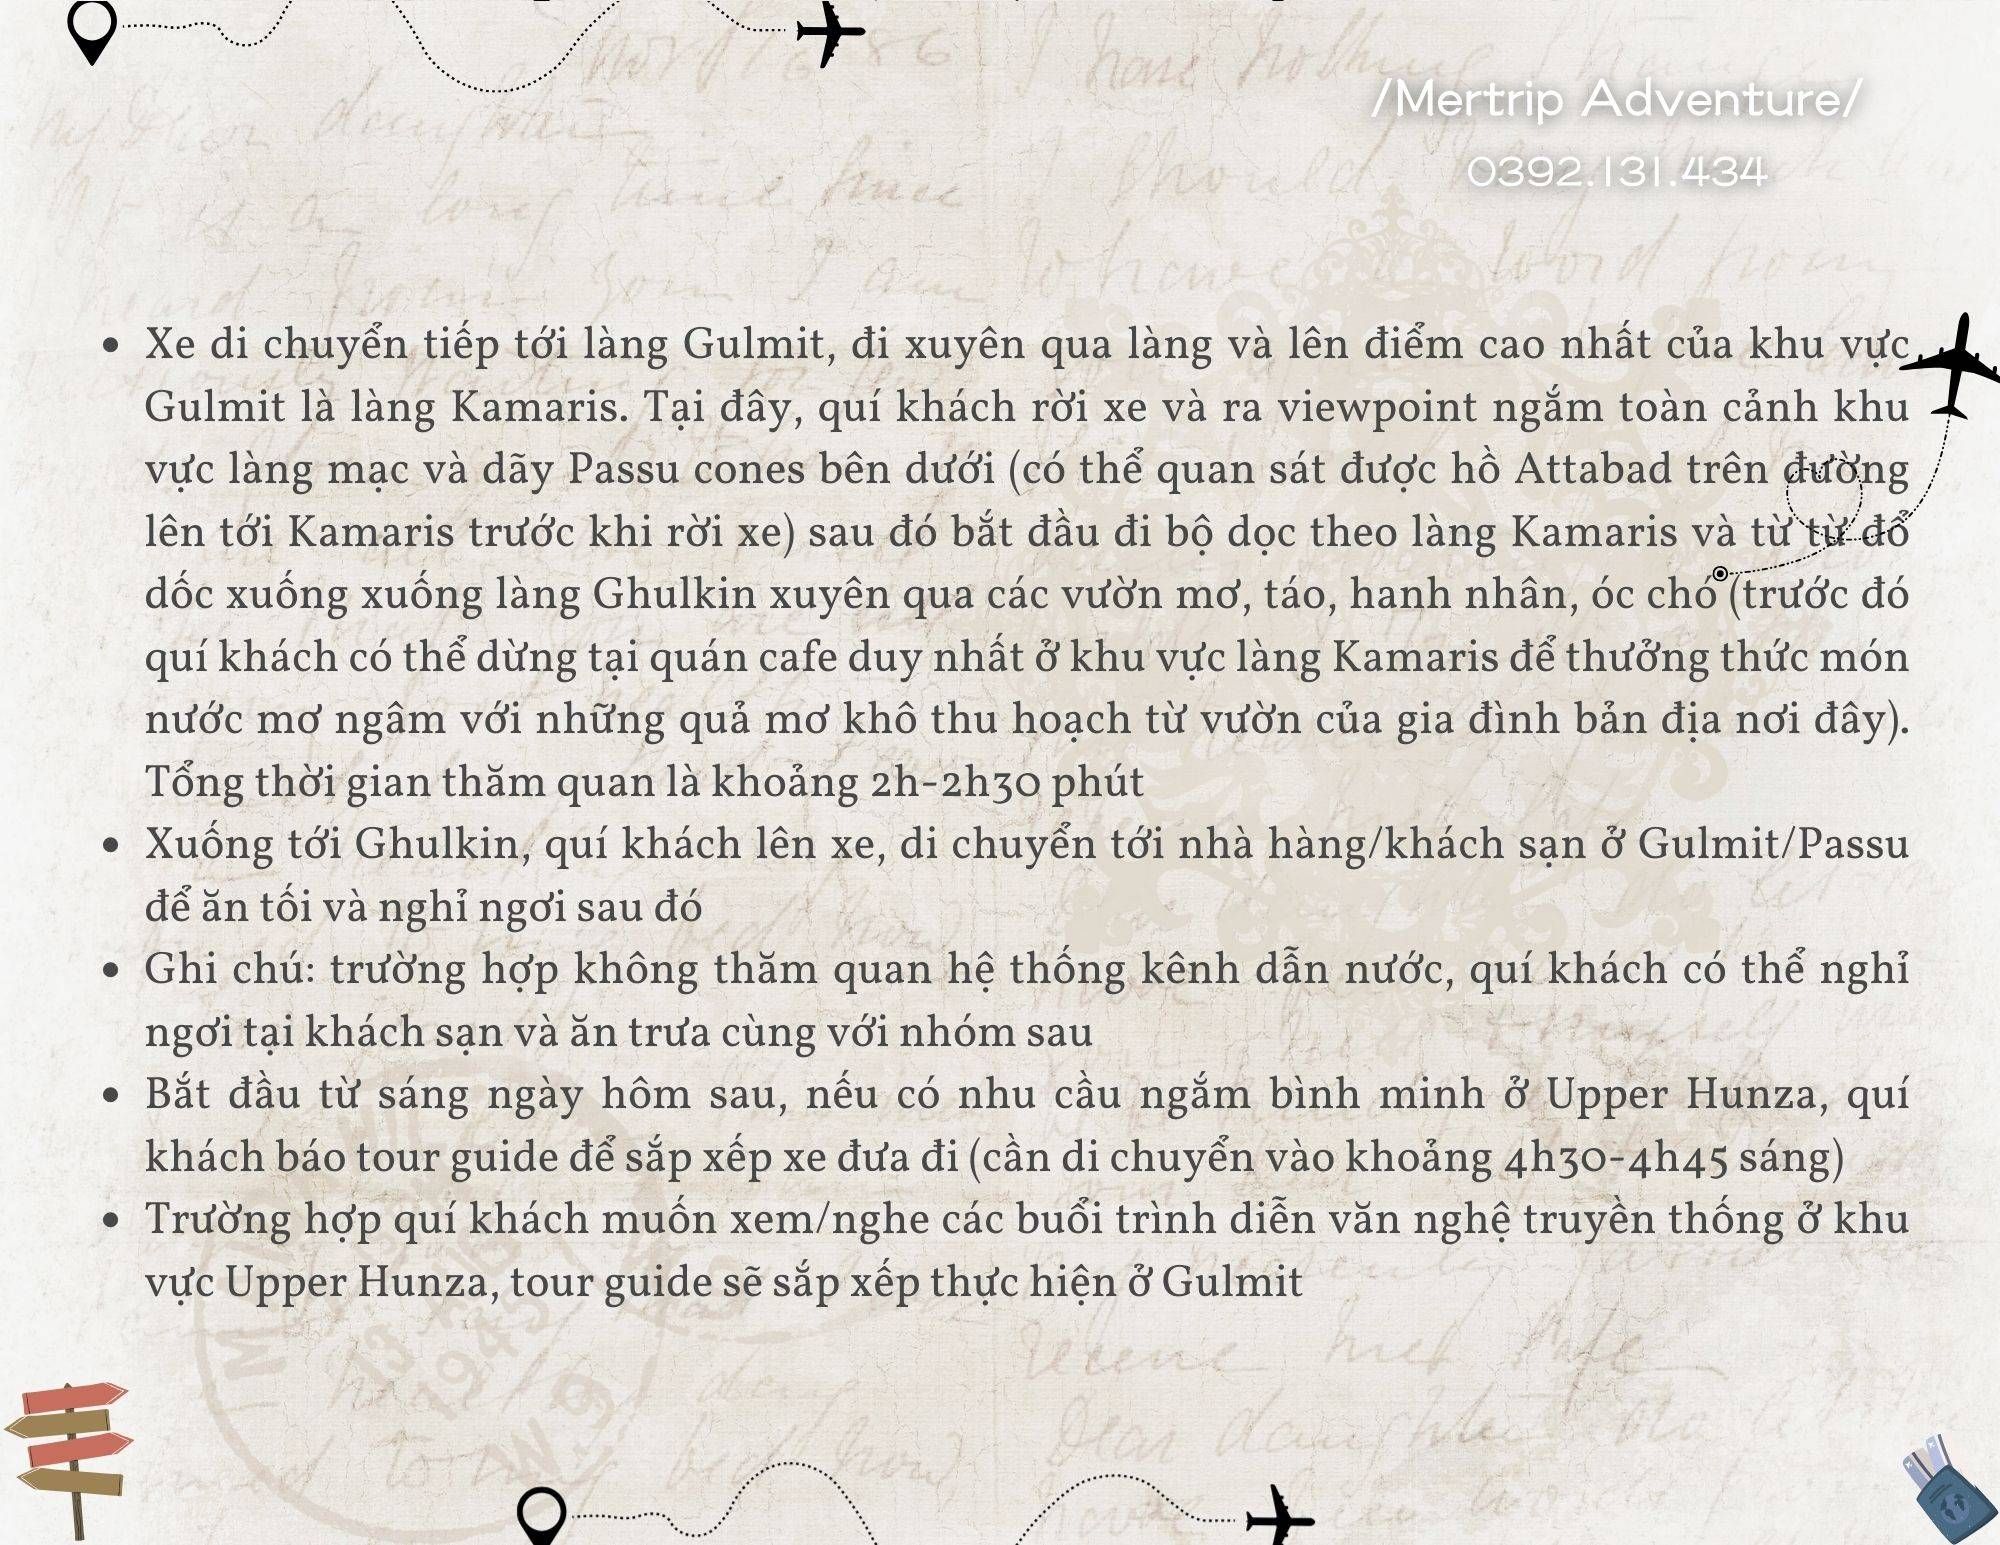 /Mertrip Adventure/
0392.131.434
• Xe di chuyển tiếp tới làng Gulmit, đi xuyên qua làng và lên điểm cao nhất của khu vực
Gulmit là làng Kamaris. Tại đây, quí khách rời xe và ra viewpoint ngắm toàn cảnh khu
vực làng mạc và dãy Passu cones bên dưới (có thể quan sát được hồ Attabad trên đường
lên tới Kamaris trước khi rời xe) sau đó bắt đầu đi bộ dọc theo làng Kamaris và từ từ đổ
dốc xuống xuống làng Ghulkin xuyên qua các vườn mơ, táo, hanh nhân, óc chó (trước đó
quí khách có thể dừng tại quán cafe duy nhất ở khu vực làng Kamaris để thưởng thức món
nước mơ ngâm với những quả mơ khô thu hoạch từ vườn của gia đình bản địa nơi đây).
Tổng thời gian thăm quan là khoảng 2h-2h30 phút
• Xuống tới Ghulkin, quí khách lên xe, di chuyển tới nhà hàng/khách sạn ở Gulmit/Passu
để ăn tối và nghỉ ngơi sau đó
• Ghi chú: trường hợp không thăm quan hệ thống kênh dẫn nước, quí khách có thể nghỉ
ngơi tại khách sạn và ăn trưa cùng với nhóm sau
• Bắt đầu từ sáng ngày hôm sau, nếu có nhu cầu ngắm bình minh ở Upper Hunza, quí
khách báo tour guide để sắp xếp xe đưa đi (cần di chuyển vào khoảng 4h30-4h45 sáng)
• Trường hợp quí khách muốn xem/nghe các buổi trình diễn văn nghệ truyền thống ở khu
vực Upper Hunza, tour guide sẽ sắp xếp thực hiện ở Gulmit